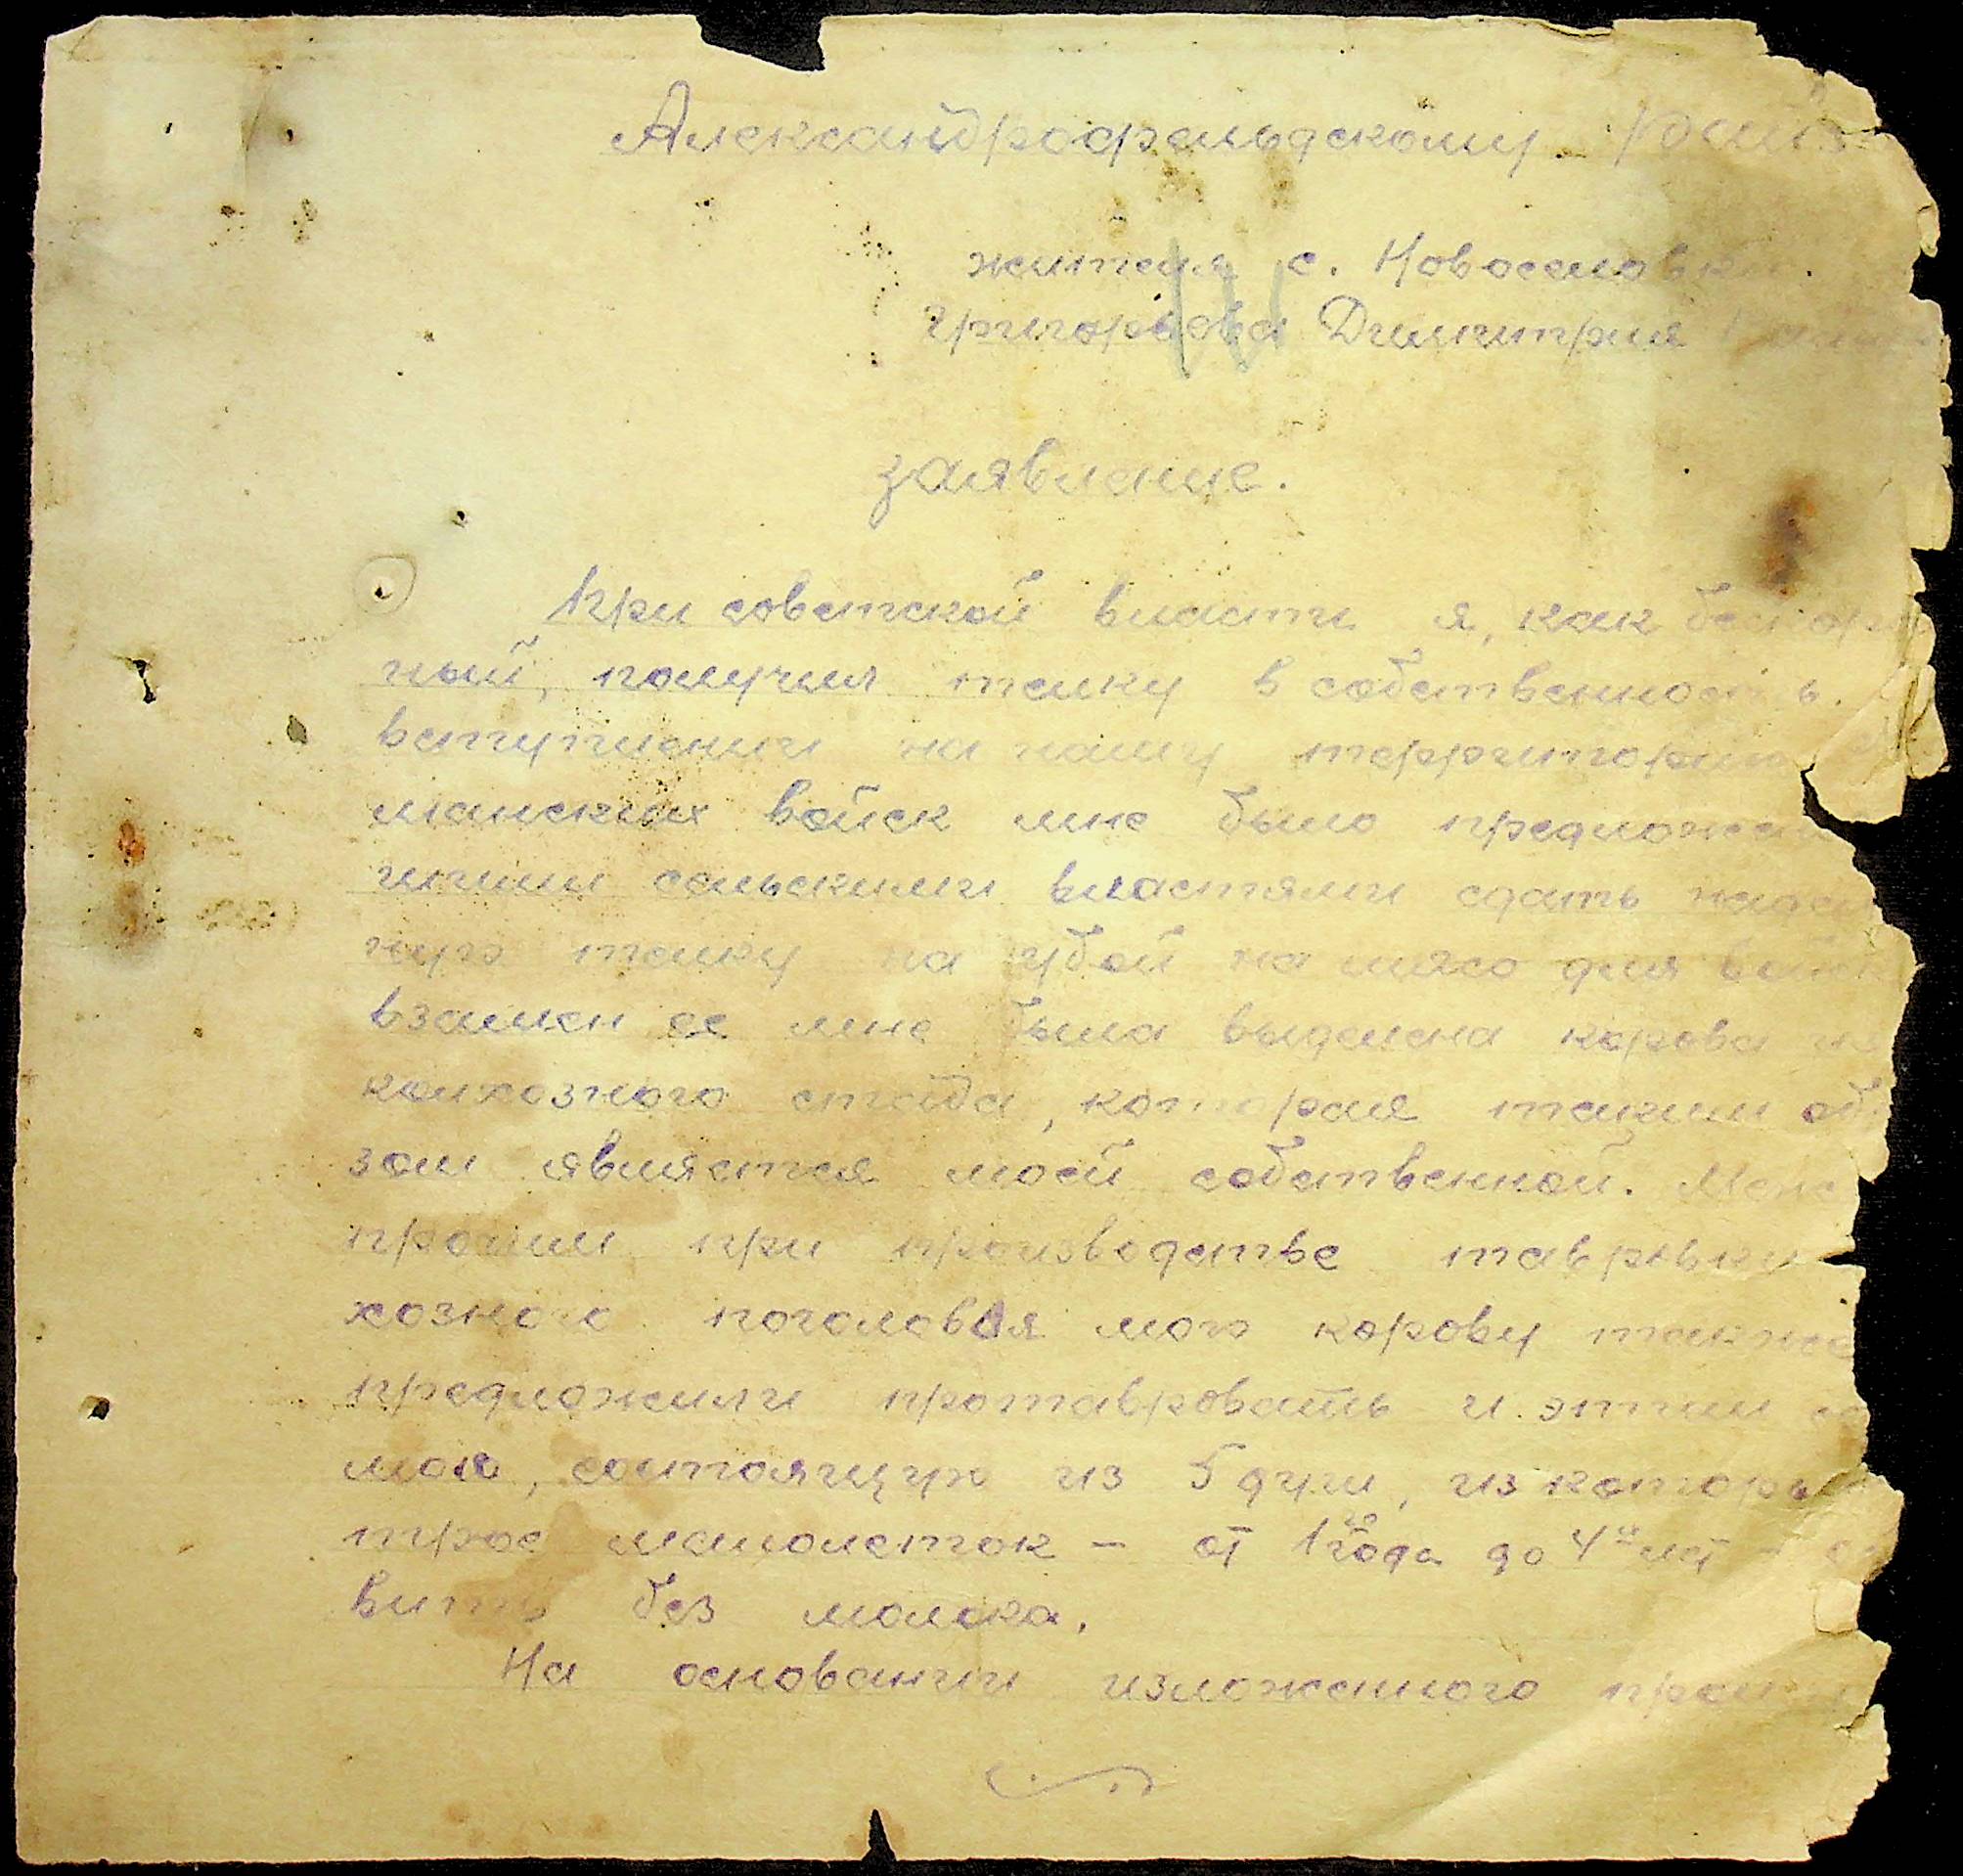 Александрофельдскому
жителя с. Новоселовки
Григорьева Димитрия
заявление.
При советской власти я, как бескоров
ный, получил телку в собственность.
вступлении на нашу территорию
манских войск мне было предложен
ными сельскими властями сдать
ную телку на убой на мясо для войск
взамен ее мне была выделена корова из
колхозного стада, которая таким обра
зом является моей собственной. Меж
прочим при производстве тавровки
хозного поголовья мою корову также
предложили протавровать и этим се
мью, состоящую из 5 душ, из которых
трое малолеток - от 1го года до 4х лет - ос
вить без молока.
На основании изложенного прошу